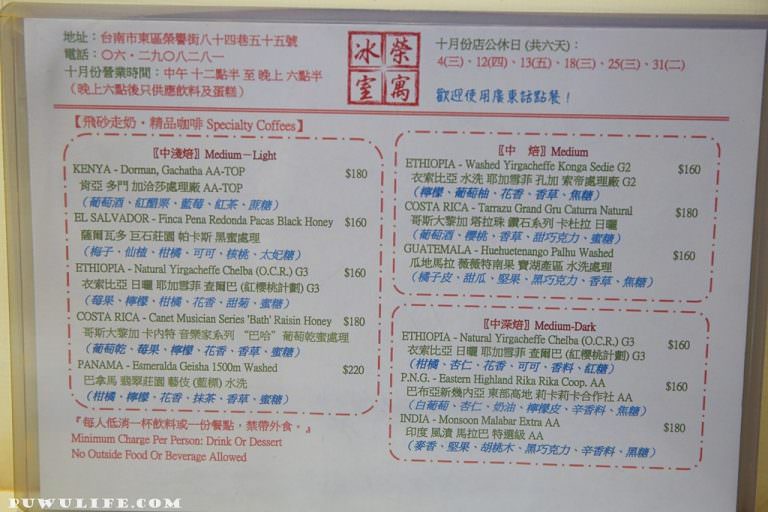 地址：台南市東區榮譽街八十四巷五十五號
電話：〇六．二九〇八二八一
十月份營業時間：中午 十二點半 至 晚上 六點半
（晚上六點後只供應飲料及蛋糕）
榮寓冰室
十月份店公休日 (共六天)：
4(三)、12(四)、13(五)、18(三)、25(三)、31(二)
歡迎使用廣東話點餐！
【飛砂走奶．精品咖啡 Specialty Coffees】
〖中淺焙〗Medium－Light
KENYA - Dorman, Gachatha AA-TOP $180
肯亞 多門 加洽莎處理廠 AA-TOP
（葡萄酒、紅醋栗、藍莓、紅茶、蔗糖）
EL SALVADOR - Finca Pena Redonda Pacas Black Honey $160
薩爾瓦多 巨石莊園 帕卡斯 黑蜜處理
（梅子、仙楂、柑橘、可可、核桃、太妃糖）
ETHIOPIA - Natural Yirgacheffe Chelba (O.C.R.) G3 $160
衣索比亞 日曬 耶加雪菲 查爾巴 (紅櫻桃計劃) G3
（莓果、檸檬、柑橘、花香、甜菊、蜜糖）
COSTA RICA - Canet Musician Series 'Bath' Raisin Honey $180
哥斯大黎加 卡內特 音樂家系列 “巴哈” 葡萄乾蜜處理
（葡萄乾、莓果、檸檬、花香、香草、蜜糖）
PANAMA - Esmeralda Geisha 1500m Washed $220
巴拿馬 翡翠莊園 藝伎 (藍標) 水洗
（柑橘、檸檬、花香、抹茶、香草、蜜糖）
『每人低消一杯飲料或一份餐點，禁帶外食。』
Minimum Charge Per Person: Drink Or Dessert
No Outside Food Or Beverage Allowed
〖中 焙〗Medium
ETHIOPIA - Washed Yirgacheffe Konga Sedie G2 $160
衣索比亞 水洗 耶加雪菲 孔加 索帝處理廠 G2
（檸檬、葡萄柚、花香、香草、焦糖）
COSTA RICA - Tarrazu Grand Gru Caturra Natural $180
哥斯大黎加 塔拉珠 鑽石系列 卡杜拉 日曬
（葡萄酒、櫻桃、香草、甜巧克力、蜜糖）
GUATEMALA - Huehuetenango Palhu Washed $160
瓜地馬拉 薇薇特南果 寶湖產區 水洗處理
（橘子皮、甜瓜、堅果、黑巧克力、香草、焦糖）
〖中深焙〗Medium-Dark
ETHIOPIA - Natural Yirgacheffe Chelba (O.C.R.) G3 $160
衣索比亞 日曬 耶加雪菲 查爾巴 (紅櫻桃計劃) G3
（柑橘、杏仁、花香、可可、香料、紅糖）
P.N.G. - Eastern Highland Rika Rika Coop. AA $160
巴布亞新幾內亞 東部高地 莉卡莉卡合作社 AA
（白葡萄、杏仁、奶油、檸檬皮、辛香料、焦糖）
INDIA - Monsoon Malabar Extra AA $180
印度 風漬 馬拉巴 特選級 AA
（麥香、堅果、胡桃木、黑巧克力、辛香料、黑糖）
PUWULIFE.COM